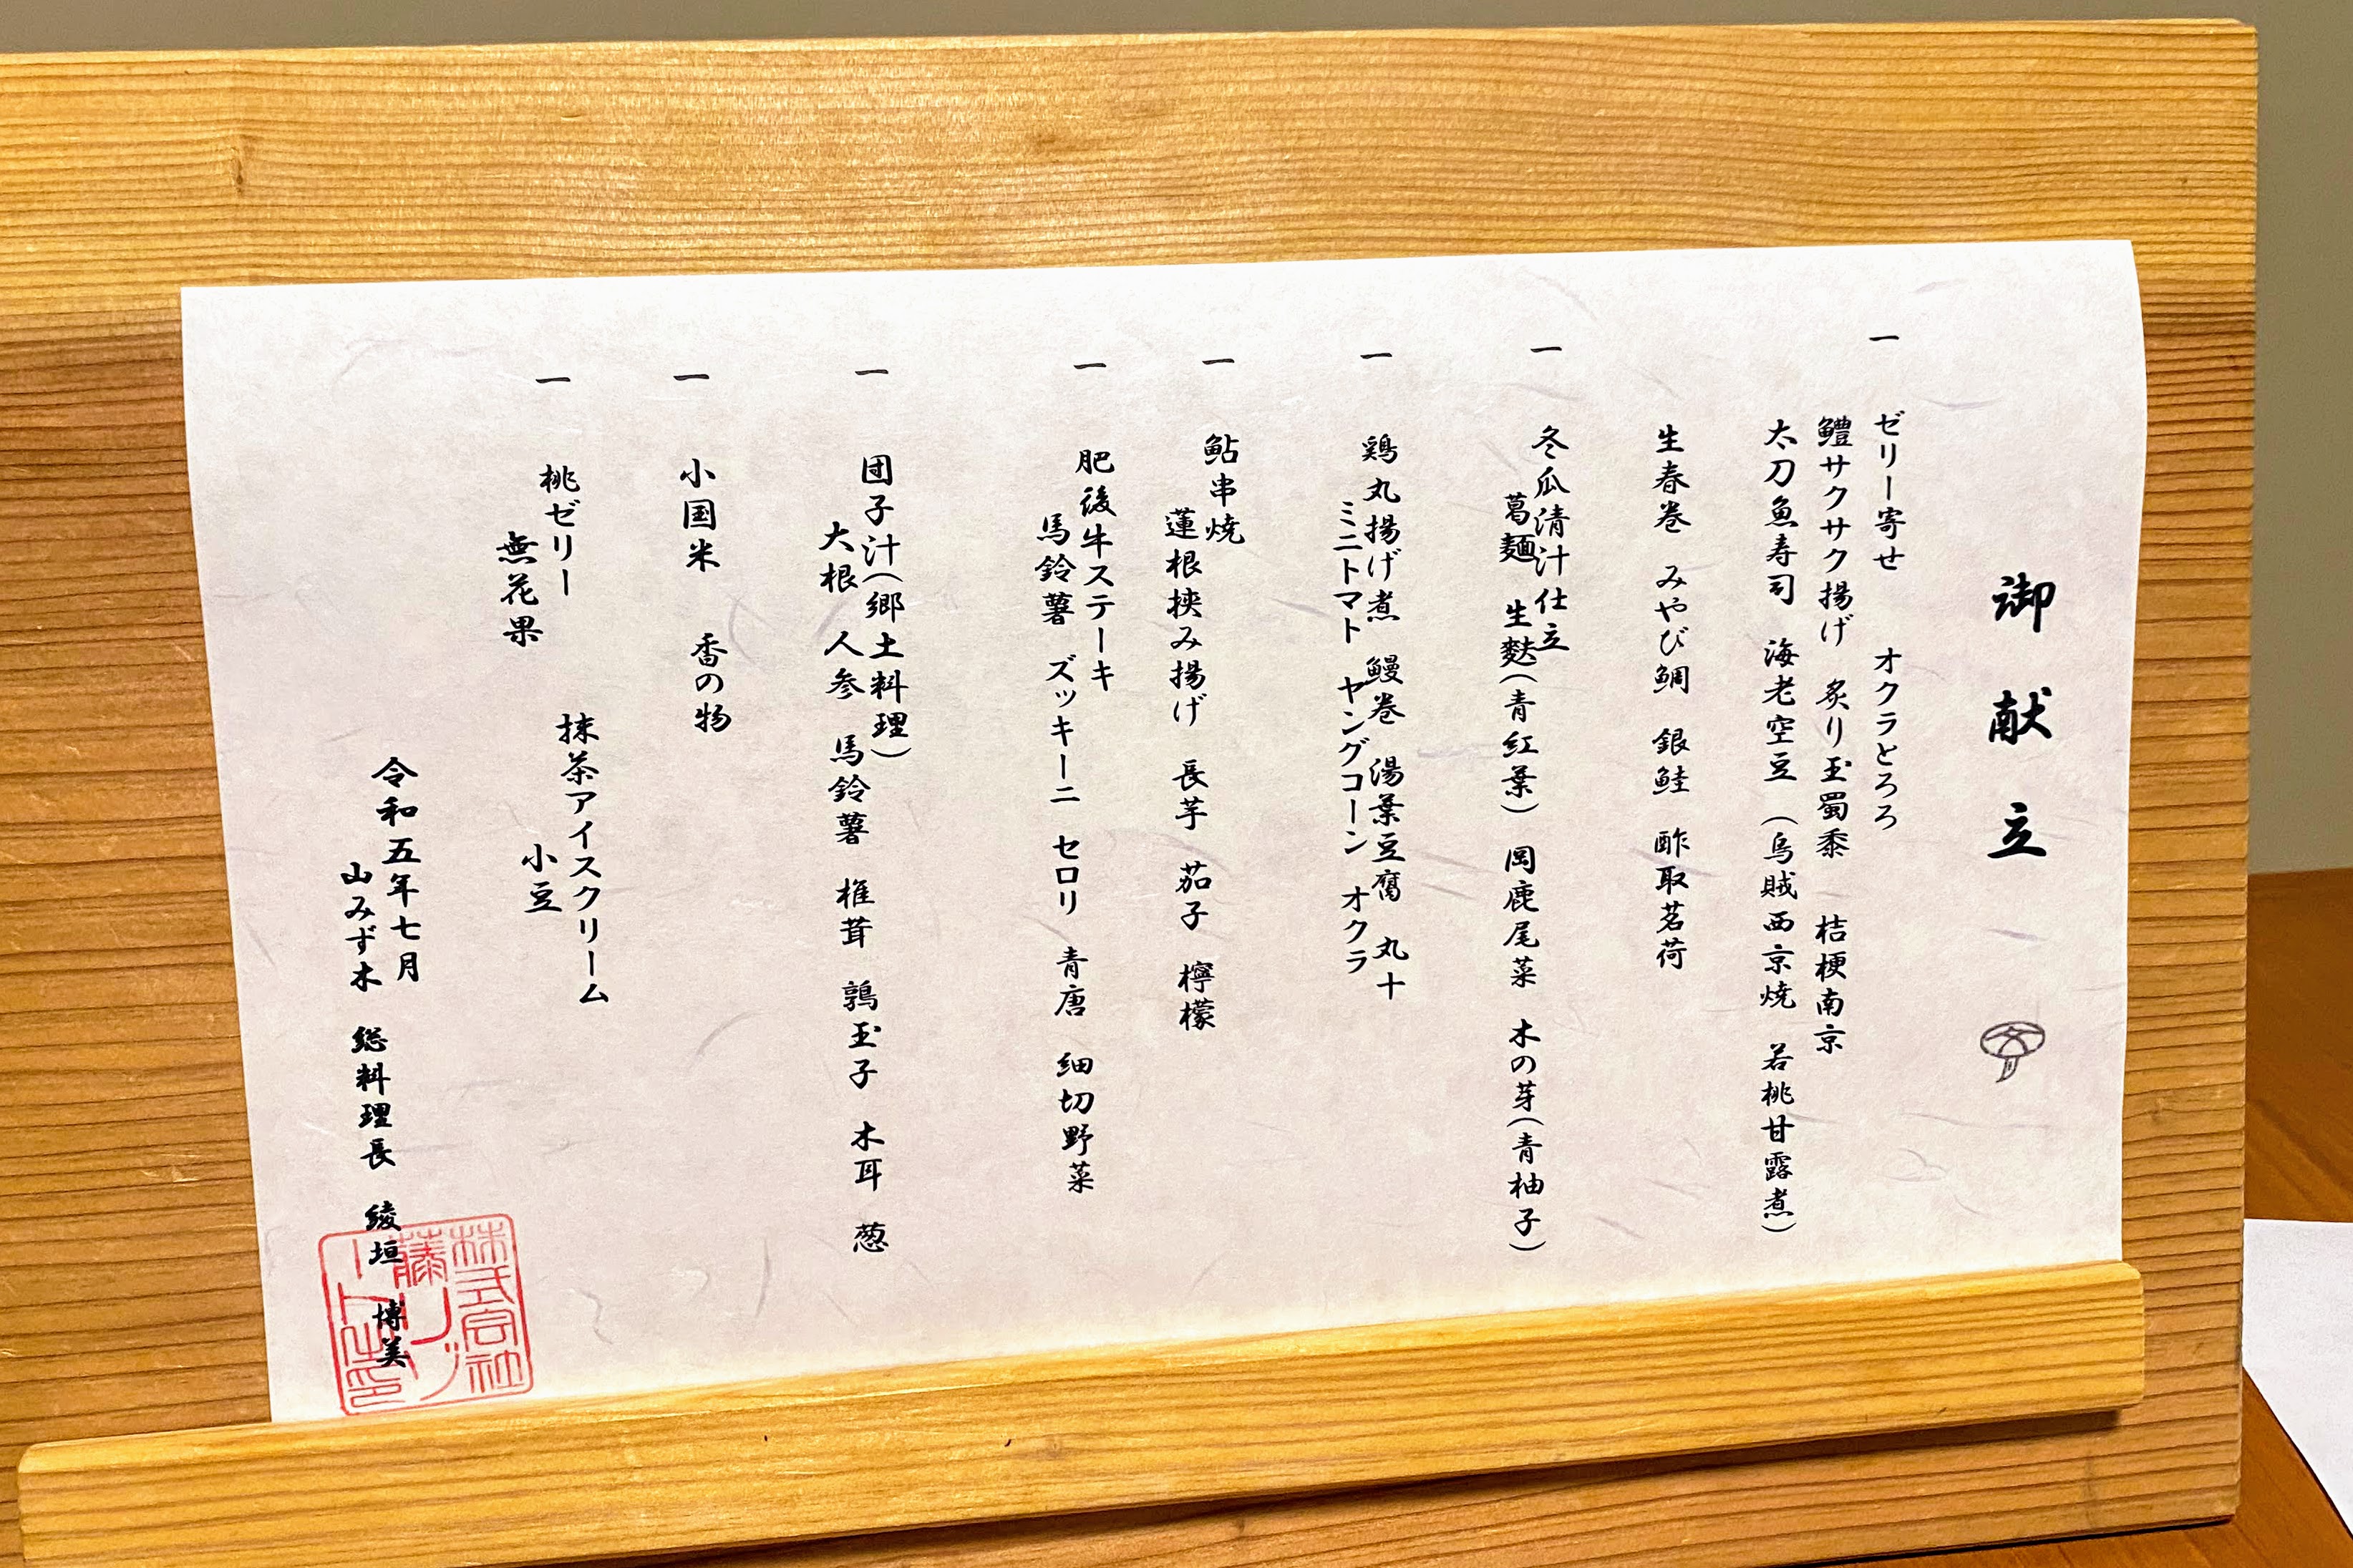 御献立
一 ゼリー寄せ オクラとろろ
鱧サクサク揚げ 炙り玉蜀黍 桔梗南京
太刀魚寿司 海老空豆 (烏賊西京焼 若桃甘露煮)
生春巻 みやび鯛 銀鮭 酢取茗荷
一 冬瓜清汁仕立
葛麺 生麩(青紅葉) 岡鹿尾菜 木の芽(青柚子)
一 鶏丸揚げ煮 鰻巻 湯葉豆腐 丸十
ミニトマト ヤングコーン オクラ
一 鮎串焼
蓮根挟み揚げ 長芋 茄子 檸檬
一 肥後牛ステーキ
馬鈴薯 ズッキーニ セロリ 青唐 細切野菜
一 団子汁(郷土料理)
大根 人参 馬鈴薯 椎茸 鶉玉子 木耳 葱
一 小国米 香の物
一 桃ゼリー 抹茶アイスクリーム
無花果 小豆
令和五年七月
山みず木 総料理長 綾垣 博美
株式会社
藤リゾ
ート之印